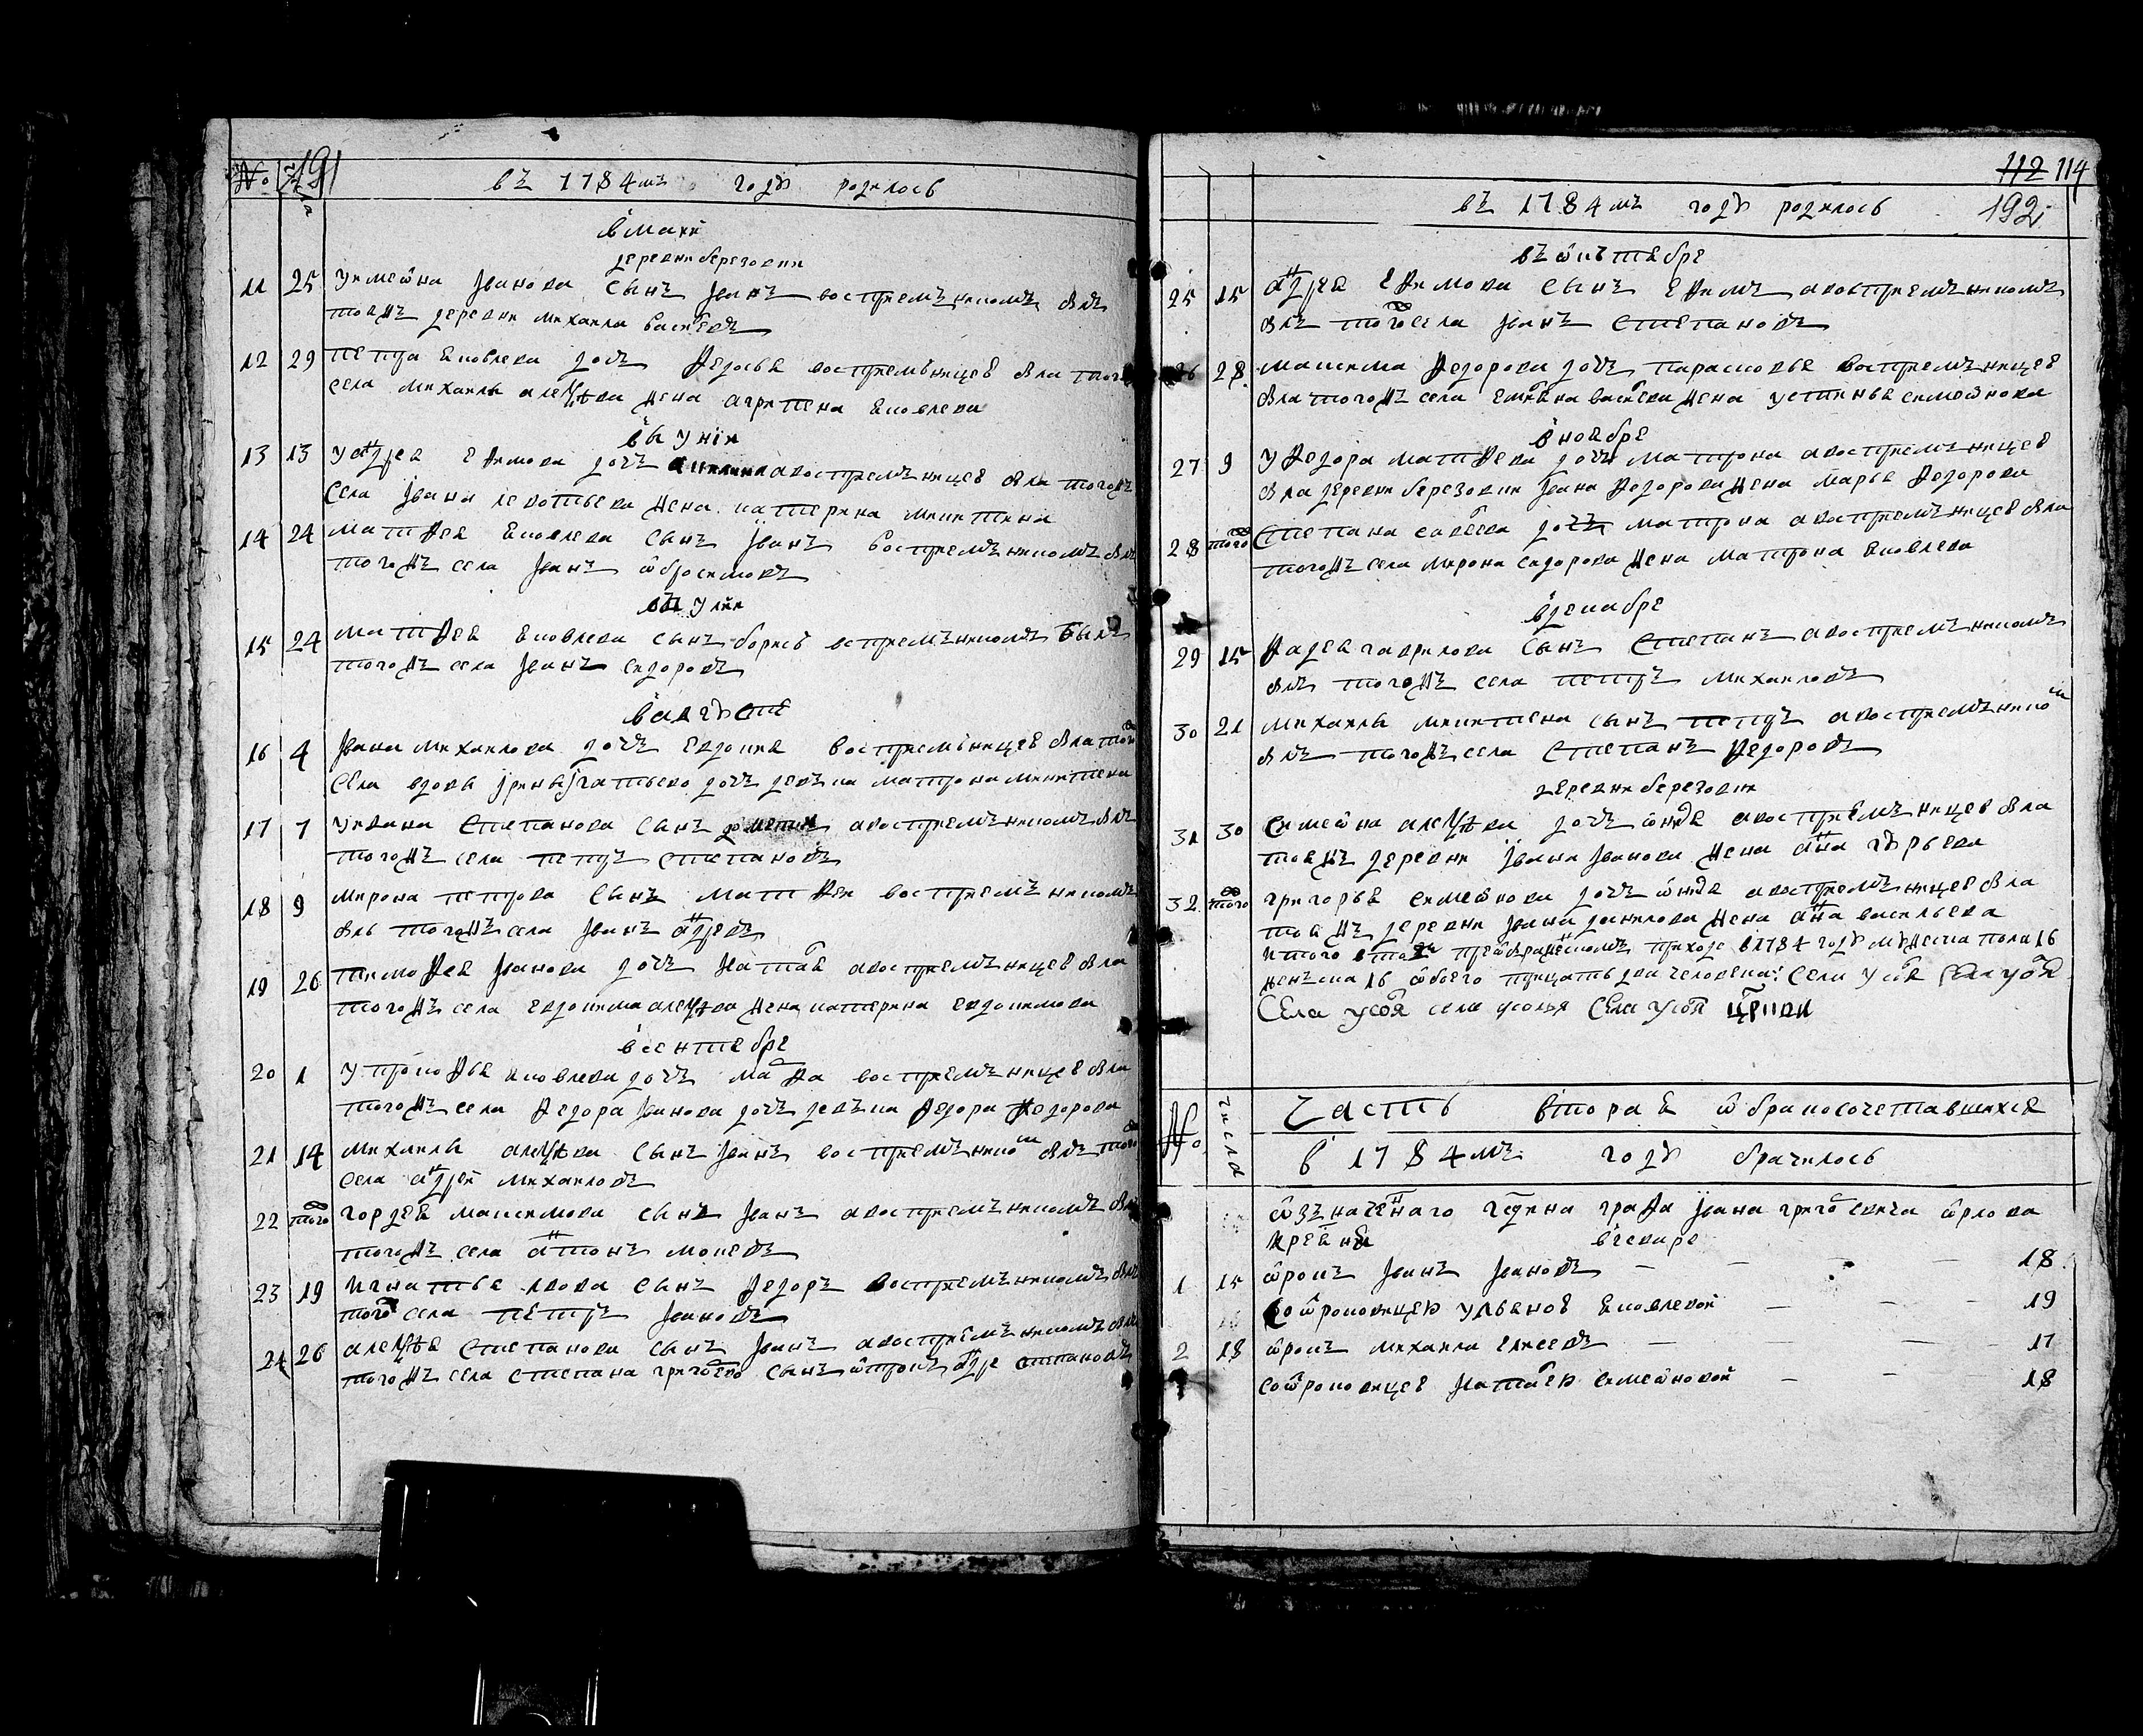 № 191
въ 1784мъ году родилось
в маии
деревни березовки
11 25 у симеѿна иванова сынъ иванъ восприемъникомъ былъ
тояжъ деревни михаила васильевъ
12 29 петра яковлева дочь федосья восприемъницеѣ была того
села михаилы алеѯѣева жена агрипена яковлева
в ыунии
13 13 у андрея ефимова дочь акилина а восприемъницеѣ была тогожъ
села ивана левонтьева жена катерина микитина
14 24 матфея яковлева сынъ иванъ восприемъникомъ былъ
тогожъ села иванъ ѡбросимовъ
в ыулии
15 24 матфея яковлева сынъ борисъ встриемъникомъ былъ
тогожъ села иванъ сидоровъ
в августе
16 4 ивана михаилова дочь евдокия восприемъницеѣ была того
села вдовы ирины игнатьево дочь девъка матрона микитина
17 7 у ивана степанова сынъ дометии а восприемъникомъ былъ
тогожъ села петръ степановъ
18 9 мирона петрова сынъ матфеи восприемъникомъ
былъ тогожъ села иванъ андреевъ
19 26 тимофея иванова дочь наталя а восприемъницеѣ была
тогожъ села евдокима алеѯѣева жена катерина евдокимова
в сентебре
20 1 у прокофья яковлева дочь марфа восприемъницеѣ была
тогожъ села федора иванова дочь девъка федора федорова
21 14 михаилы алеѯѣева сынъ иванъ восприемъникомъ былъ того
села андреи михаиловъ
22 того гордея максимова сынъ иванъ а восприемъникомъ былъ
тогожъ села антонъ мокеевъ
23 19 игнатья лвова сынъ федоръ восприемъникомъ былъ
того села петръ ивановъ
24 26 алеѯѣя степанова сынъ иванъ а восприемъникомъ былъ
тогожъ села степана григорьево сынъ ѿтрокъ андре степановъ
112 114
въ 1784мъ году родилось 192
въ ѡктябре
25 15 андрея ефимова сынъ ефимъ а восприемъникомъ
былъ того села иванъ степановъ
26 28 максима федорова дочь парасковья восприемъницеѣ
была тогожъ села емельяна васильева жена устинья симеѡнова
в ноябре
27 9 у федора матфеева дочь матрона а восприемъницеѣ
была деревни березовки ивана федорова жена марья федорова
28 того степана савельева дочь матрона а восприемъницеѣ была
тогожъ села мирона сидорова жена матрона яковлева
в декабре
29 15 фадея гаврилова сынъ степанъ а восприемъникомъ
былъ тогожъ села петръ михаиловъ
30 21 михаилы микитина сынъ петръ а восприемънико
былъ тогожъ села степанъ федоровъ
деревни березовки
31 30 симеѡна алеѯѣева дочь а восприемъницеѣ была
тояжъ деревни ивана иванова жена анна гурьева
32 того григорья симеѡнова дочь а восприемъницеѣ была
тояжъ деревни ивана данилова жена анна васильева
итого в томъ приходе в 1784 году мужеска пола 16
женъска 16 ѡбоего трицать два человека: села усолья села усолья
села усолья села усолья села усолья церкви
№ числа часть втораѣ ѡ бракосочетавшихся
в 1784мъ году брачилось
ѡзъначенаго гсдина графа ивана григоревича ѡрлова
кресьян в генваре
1 15 ѿрокъ иванъ ивановъ — — — 18
со ѿроковицею ульяноѣ яковлевой — — — 19
2 18 ѿрокъ михаила елисеевъ — — — 17
со ѿроковицеѣ наталею симеѡновой — — — 18